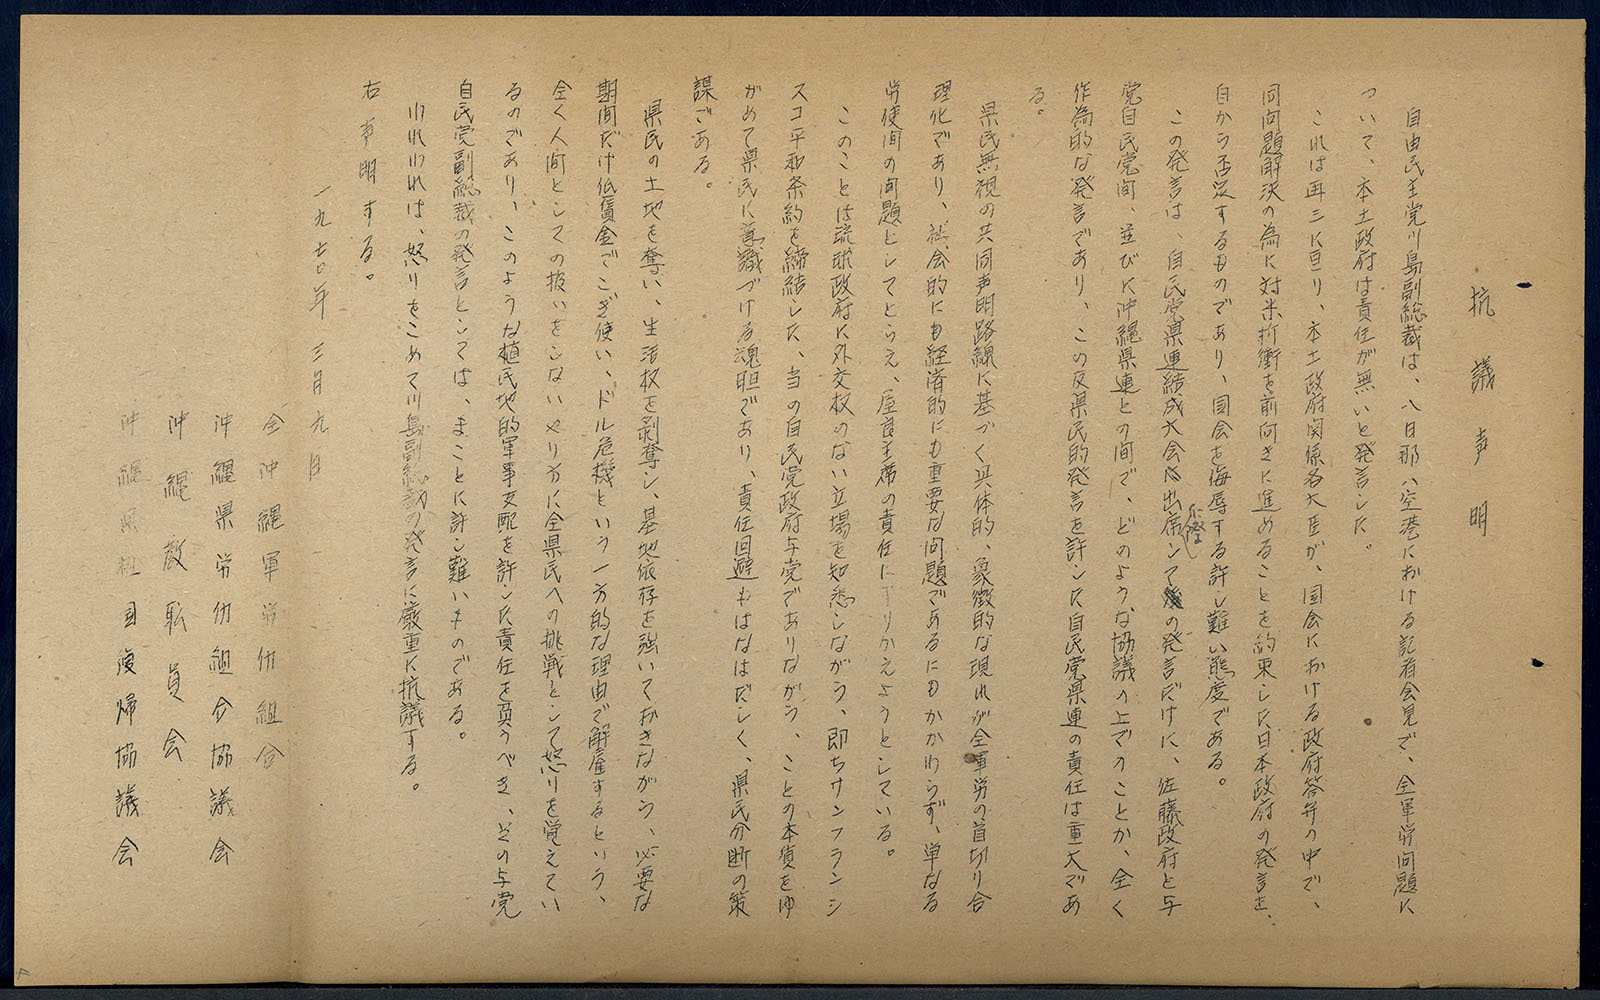 抗議声明
自由民主党川島副総裁は、八日那ハ空港における記者会見で、全軍労問題に
ついて、本土政府は責任が無いと発言した。
これは再三に亘り、本土政府関係各大臣が、国会における政府答弁の中で、
同問題解決の為に対米折衝を前向きに進めることを約束した日本政府の発言を、
自から否定するものであり、国会を侮辱する許し難い態度である。
この発言は、自民党県連結成大会へ出席しての発言だけに、佐藤政府と与
党自民党間、並びに沖縄県連との間で、どのような協議の上でのことか、全く
作為的な発言であり、この反県民的発言を許した自民党県連の責任は重大であ
る。
県民無視の共同声明路線に基づく具体的、象徴的な現れが全軍労の首切り合
理化であり、社会的にも経済的にも重要な問題であるにもかかわらず、単なる
労使間の問題としてとらえ、屋良主席の責任にすりかえようとしている。
このことは琉球政府に外交权のない立場を知悉しながら、即ちサンフランシ
スコ平和条約を締結した、当の自民党政府与党でありながら、ことの本質をゆ
がめて県民に意識づける魂胆であり、責任回避もはなはだしく、県民分断の策
謀である。
県民の土地を奪い、生活权を剥奪し、基地依存を強いておきながら、必要な
期間だけ低賃金でこぎ使い、ドル危機という一方的な理由で解雇するという、
全く人間としての扱いをしないやり方に全県民への挑戦として怒りを覚えてい
るのであり、このような植民地的軍事支配を許した責任を負うべき、その与党
自民党副総裁の発言としては、まことに許し難いものである。
われわれは、怒りをこめて川島副総裁の発言に厳重に抗議する。
右声明する。
一九七〇年三月九日
全沖縄軍労仂組合
沖縄県労仂組合協議会
沖縄教転員会
沖縄県祖国復帰協議会